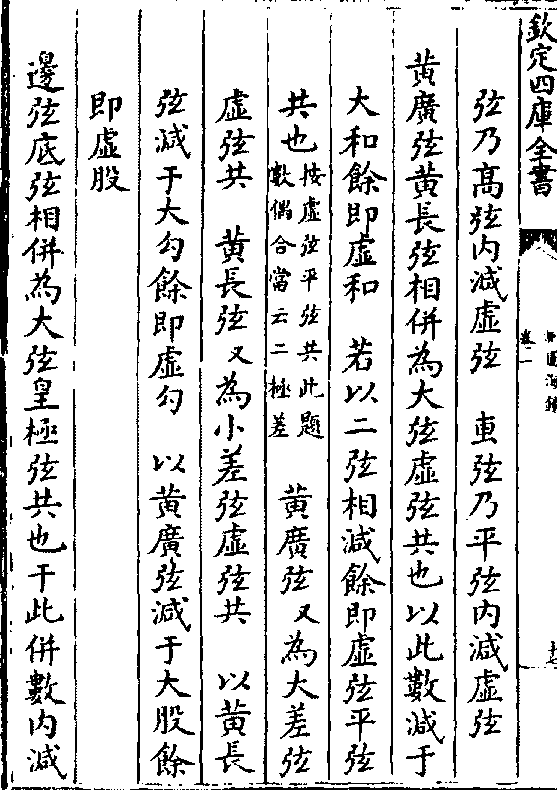 欽定四庫全書
卷一
弦乃髙弦内減虚弦　𠁁弦乃平弦内減虚弦
黄廣弦黄長弦相併為大弦虚弦共也以此數減于
大和餘即虚和　若以二弦相減餘即虚弦平弦
共也按虚弦平弦共此題
數偶合當云二極差　黄廣弦又為大差弦
虚弦共　黄長弦又為小差弦虚弦共　以黄長
弦減于大勾餘即虚勾　以黄廣弦減于大股餘
即虚股
邊弦底弦相併為大弦皇極弦共也于此併數内減